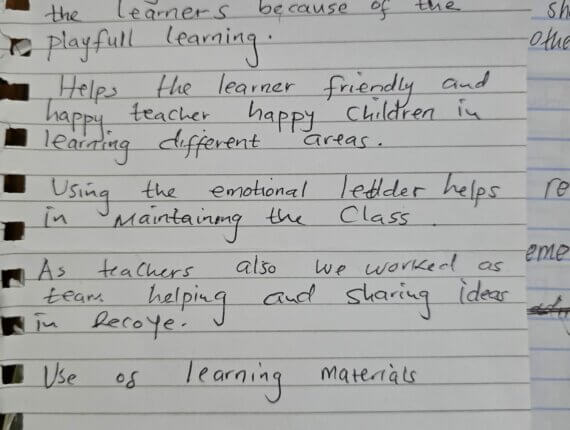 the learners because of the
playfull learning.
Helps the learner friendly and
happy teacher happy children in
learning different areas.
Using the emotional ledder helps
in Maintaining the Class.
As teachers also we worked as
team helping and sharing ideas
in Recoye.
Use of learning materials
sh
othe
re
eme